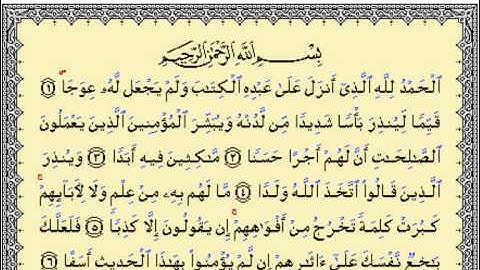 بِسْمِ اللَّهِ الرَّحْمَٰنِ الرَّحِيمِ
الْحَمْدُ لِلَّهِ الَّذِي أَنزَلَ عَلَىٰ عَبْدِهِ الْكِتَابَ وَلَمْ يَجْعَل لَّهُ عِوَجًا ۜ ﴿١﴾
قَيِّمًا لِّيُنذِرَ بَأْسًا شَدِيدًا مِّن لَّدُنْهُ وَيُبَشِّرَ الْمُؤْمِنِينَ الَّذِينَ يَعْمَلُونَ
الصَّالِحَاتِ أَنَّ لَهُمْ أَجْرًا حَسَنًا ﴿٢﴾ مَّاكِثِينَ فِيهِ أَبَدًا ﴿٣﴾ وَيُنذِرَ
الَّذِينَ قَالُوا اتَّخَذَ اللَّهُ وَلَدًا ﴿٤﴾ مَّا لَهُم بِهِ مِنْ عِلْمٍ وَلَا لِآبَائِهِمْ ۚ
كَبُرَتْ كَلِمَةً تَخْرُجُ مِنْ أَفْوَاهِهِمْ ۚ إِن يَقُولُونَ إِلَّا كَذِبًا ﴿٥﴾ فَلَعَلَّكَ
بَاخِعٌ نَّفْسَكَ عَلَىٰ آثَارِهِمْ إِن لَّمْ يُؤْمِنُوا بِهَٰذَا الْحَدِيثِ أَسَفًا ﴿٦﴾